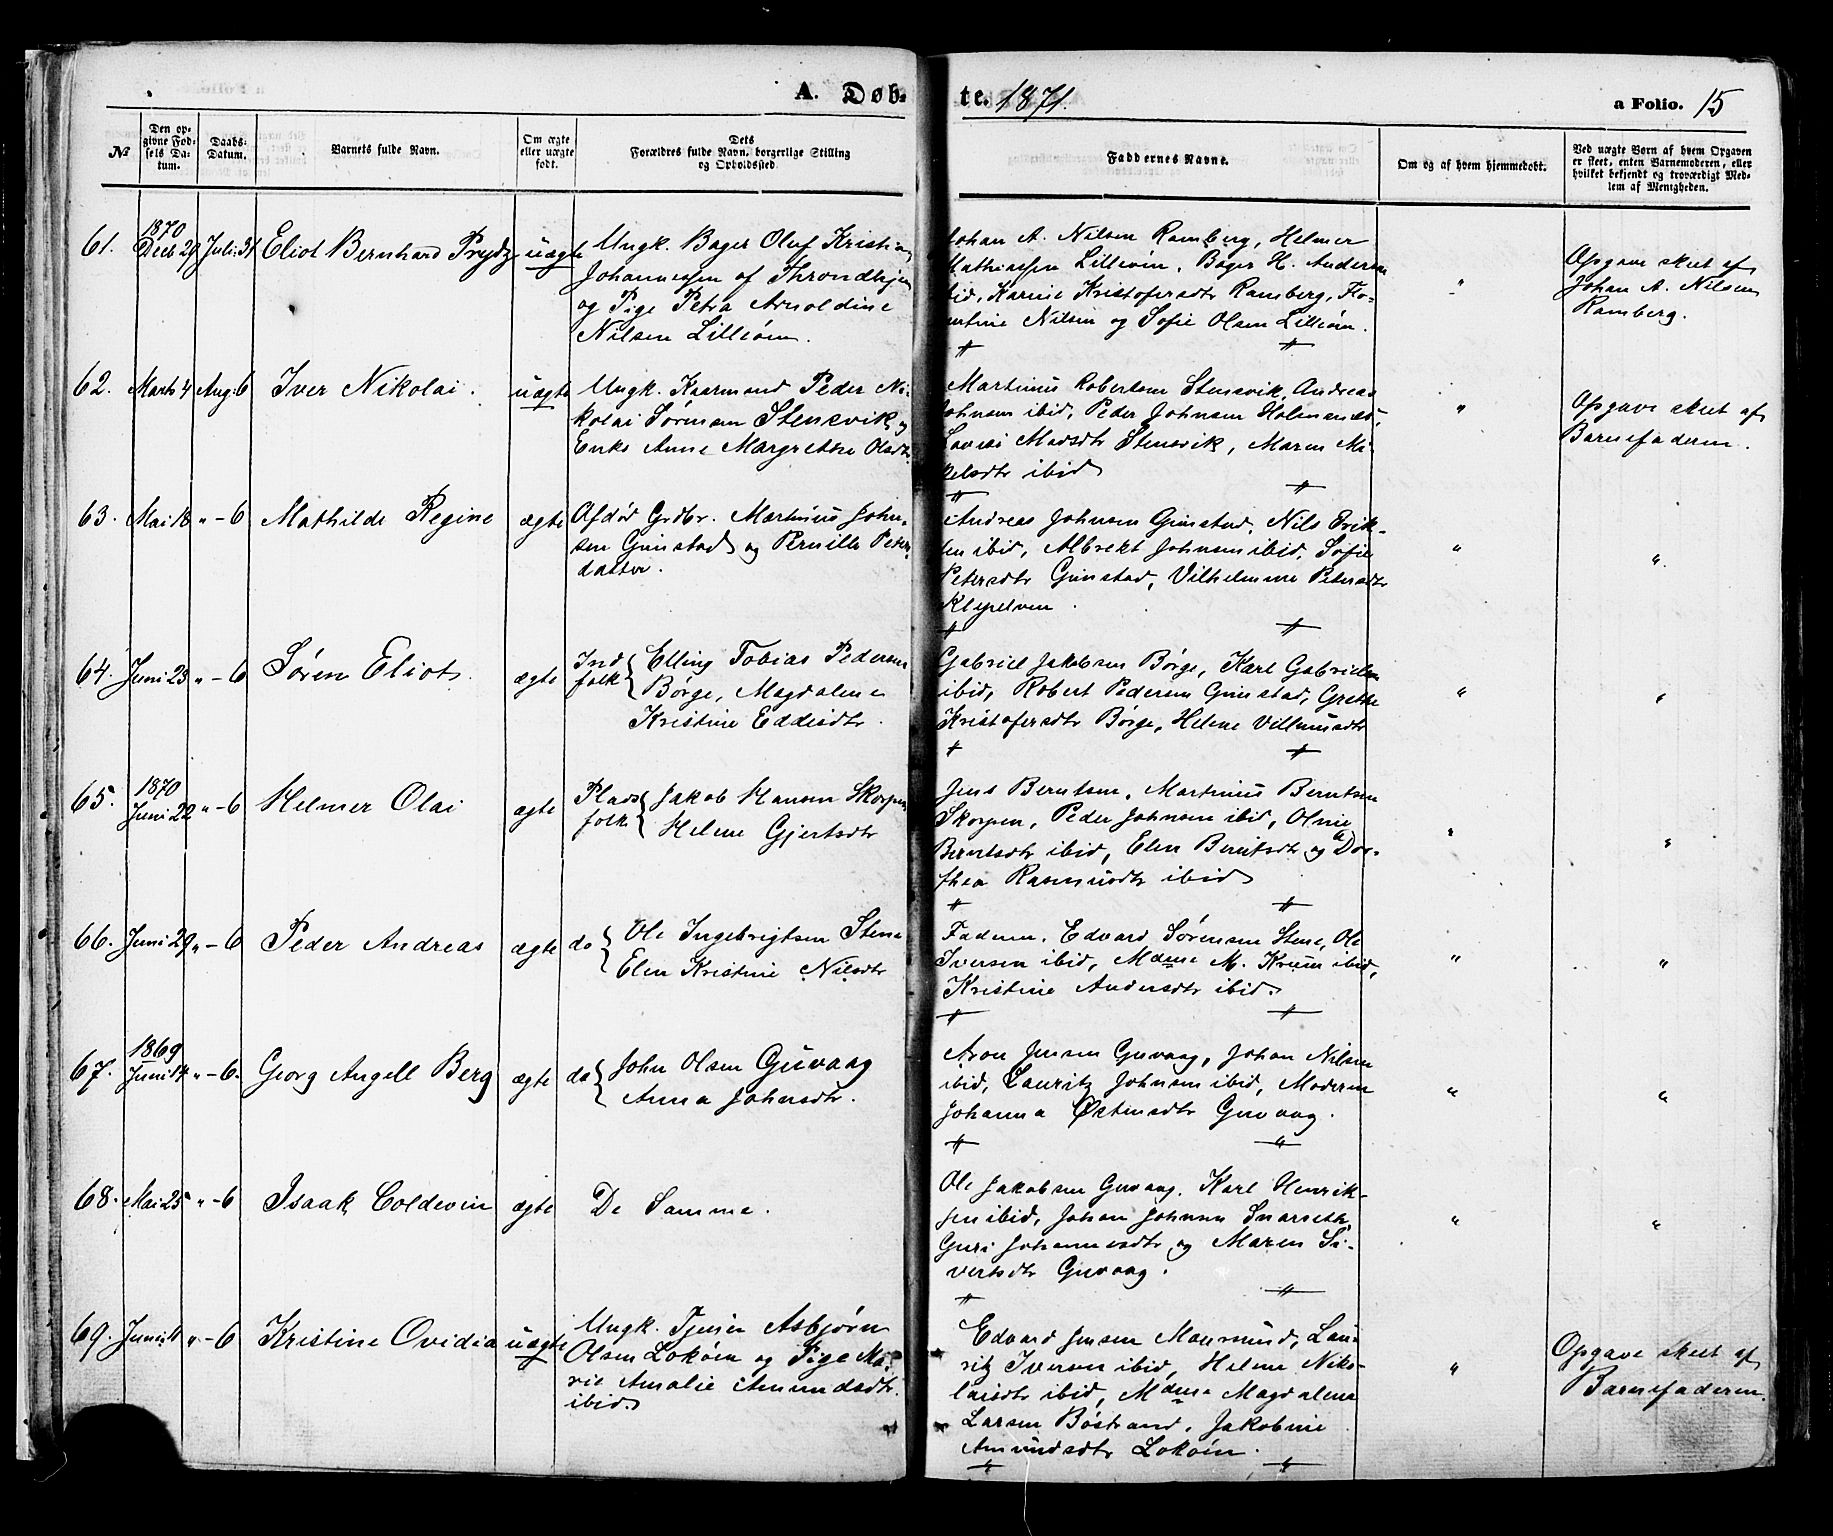 A. Døb-
te. 1871.
a Folio. 15
№
Den op-
givne Fød-
sels Da-
tum.
Daabs-
Datum.
Barnets fulde Navn.
Om ægte
eller uægte
født.
Dets
Forældres fulde Navn, borgerlige Stilling
og Opholdssted.
Faddernes Navne.
Om og af hvem hjemmedøbt.
Ved uægte Børn af hvem Opgaven
er skeet, enten Barnemoderen, eller
hvilket bekjendt og troværdigt Med-
lem af Menigheden.
61.
1870
Decb 29
Juli: 31
Eliot Bernhard Prydz
uægte
Ungk. Bager Oluf Kristian
Johannessen af Throndhjem
og Pige Petra Arnoldine
Nilsen Lilleöen.
Johan A. Nilsen Ramberg, Helmer
Mathiassen Lilleöen, Bager H. Andersen
ibid, Karine Kristofersdtr Ramberg, Flo-
rentine Nilsen og Sofie Olsen Lilleöen.
"
Opgave skeet af
Johan A. Nilsen
Ramberg.
62.
Marts 4
Aug: 6
Iver Nikolai.
uægte
Ungk. Kaarmand Peder Ni-
kolai Sørensen Stensvik og
Enke Anne Margrethe Olsdtr.
Martinus Robertsen Stensvik, Andreas
Johnsen ibid, Peder Johnsen Holmsnæs,
Lovise Madsdtr Stensvik, Maren Mi-
kelsdtr ibid
"
Opgave skeet af
Barnefaderen.
63.
Mai 18
" - 6
Mathilde Regine
ægte
Afdød Grdbr. Martinus John-
sen Grimstad og Pernille Peter-
datter.
Andreas Johnsen Grimstad, Nils Erik-
sen ibid, Albrekt Johnsen ibid, Sofie
Petersdtr Grimstad, Vilhelmine Petersdtr
Klepelven.
"
"
64.
Juni 23
" - 6
Sören Eliot.
ægte
Ind
folk
Elling Tobias Pedersen
Börge, Magdalene
Kristine Eddisdtr.
Gabriel Jakobsen Börge, Karl Gabrielsen
ibid, Robert Pedersen Grimstad, Grethe
Kristofersdtr Börge, Helene Villumsdtr
"
"
65.
1870
Juni 22
" - 6
Helmer Olai
ægte
Plads
folk
Jakob Hansen Skorpen
Helene Gjertsdtr
Jens Berntsen, Martinus Berntsen
Skorpen, Peder Johnsen ibid, Oline
Berntsdtr ibid, Elen Berntsdtr og Dor-
thea Rasmusdtr ibid
"
"
66.
Juni 29
" - 6
Peder Andreas
ægte
do
Ole Ingebrigtsen Stene
Elen Kristine Nilsdtr
Faderen, Edvard Sörensen Stene, Ole
Iversen ibid, Mdme M. Krum ibid,
Kristine Andersdtr ibid.
"
"
67.
1869
Juni 14
" - 6.
Georg Angell Berg
ægte
do
John Olsen Guvaag
Anna Johnsdtr.
Aron Jensen Guvaag, Johan Nilsen
ibid, Lauritz Johnsen ibid, Moderen
Johanna Östensdtr Guvaag.
"
"
68.
Mai 25
" - 6
Isaak Coldevin
ægte
De Samme.
Ole Jakobsen Guvaag, Karl Henrik-
sen ibid, Johan Johnsen Snarseth,
Guri Johannesdtr og Maren Si-
vertsdtr Guvaag.
"
"
69.
Juni 11
" - 6
Kristine Ovidia
uægte
Ungk. Tjener Asbjörn
Olsen Loköen og Pige Ma-
rie Amalie Amundsdtr
ibid.
Edvard Jensen Maursund, Lau-
ritz Iversen ibid, Helene Niko-
laisdtr ibid, Mdme Magdalena
Larsen Böstrand, Jakobine
Amundsdtr Loköen.
"
Opgave skeet af
Barnefaderen.